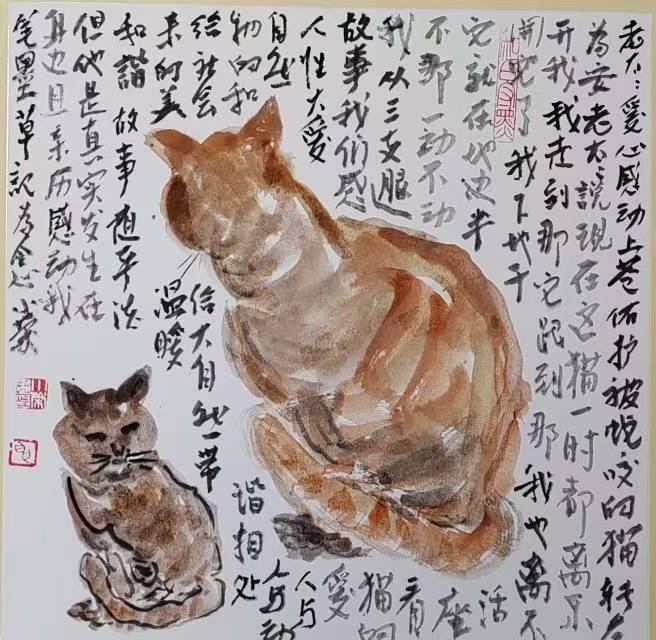 老太:愛心感动上苍佑护被蛇咬的猫转
为安老太:説现在这猫一时都离不
开我我走到那它跟到那我也离不
开它了我下地干活
它就在地边半座
不那一动不动看
我从三支眼猫的
故事我们感愛
人性大爱人与
自然人与动
物的和谐相处
给社会信大自然一带
来的美温暖
和諧故事虽平淡
但他是真实发生在
身边且亲历感动我
笔墨草記